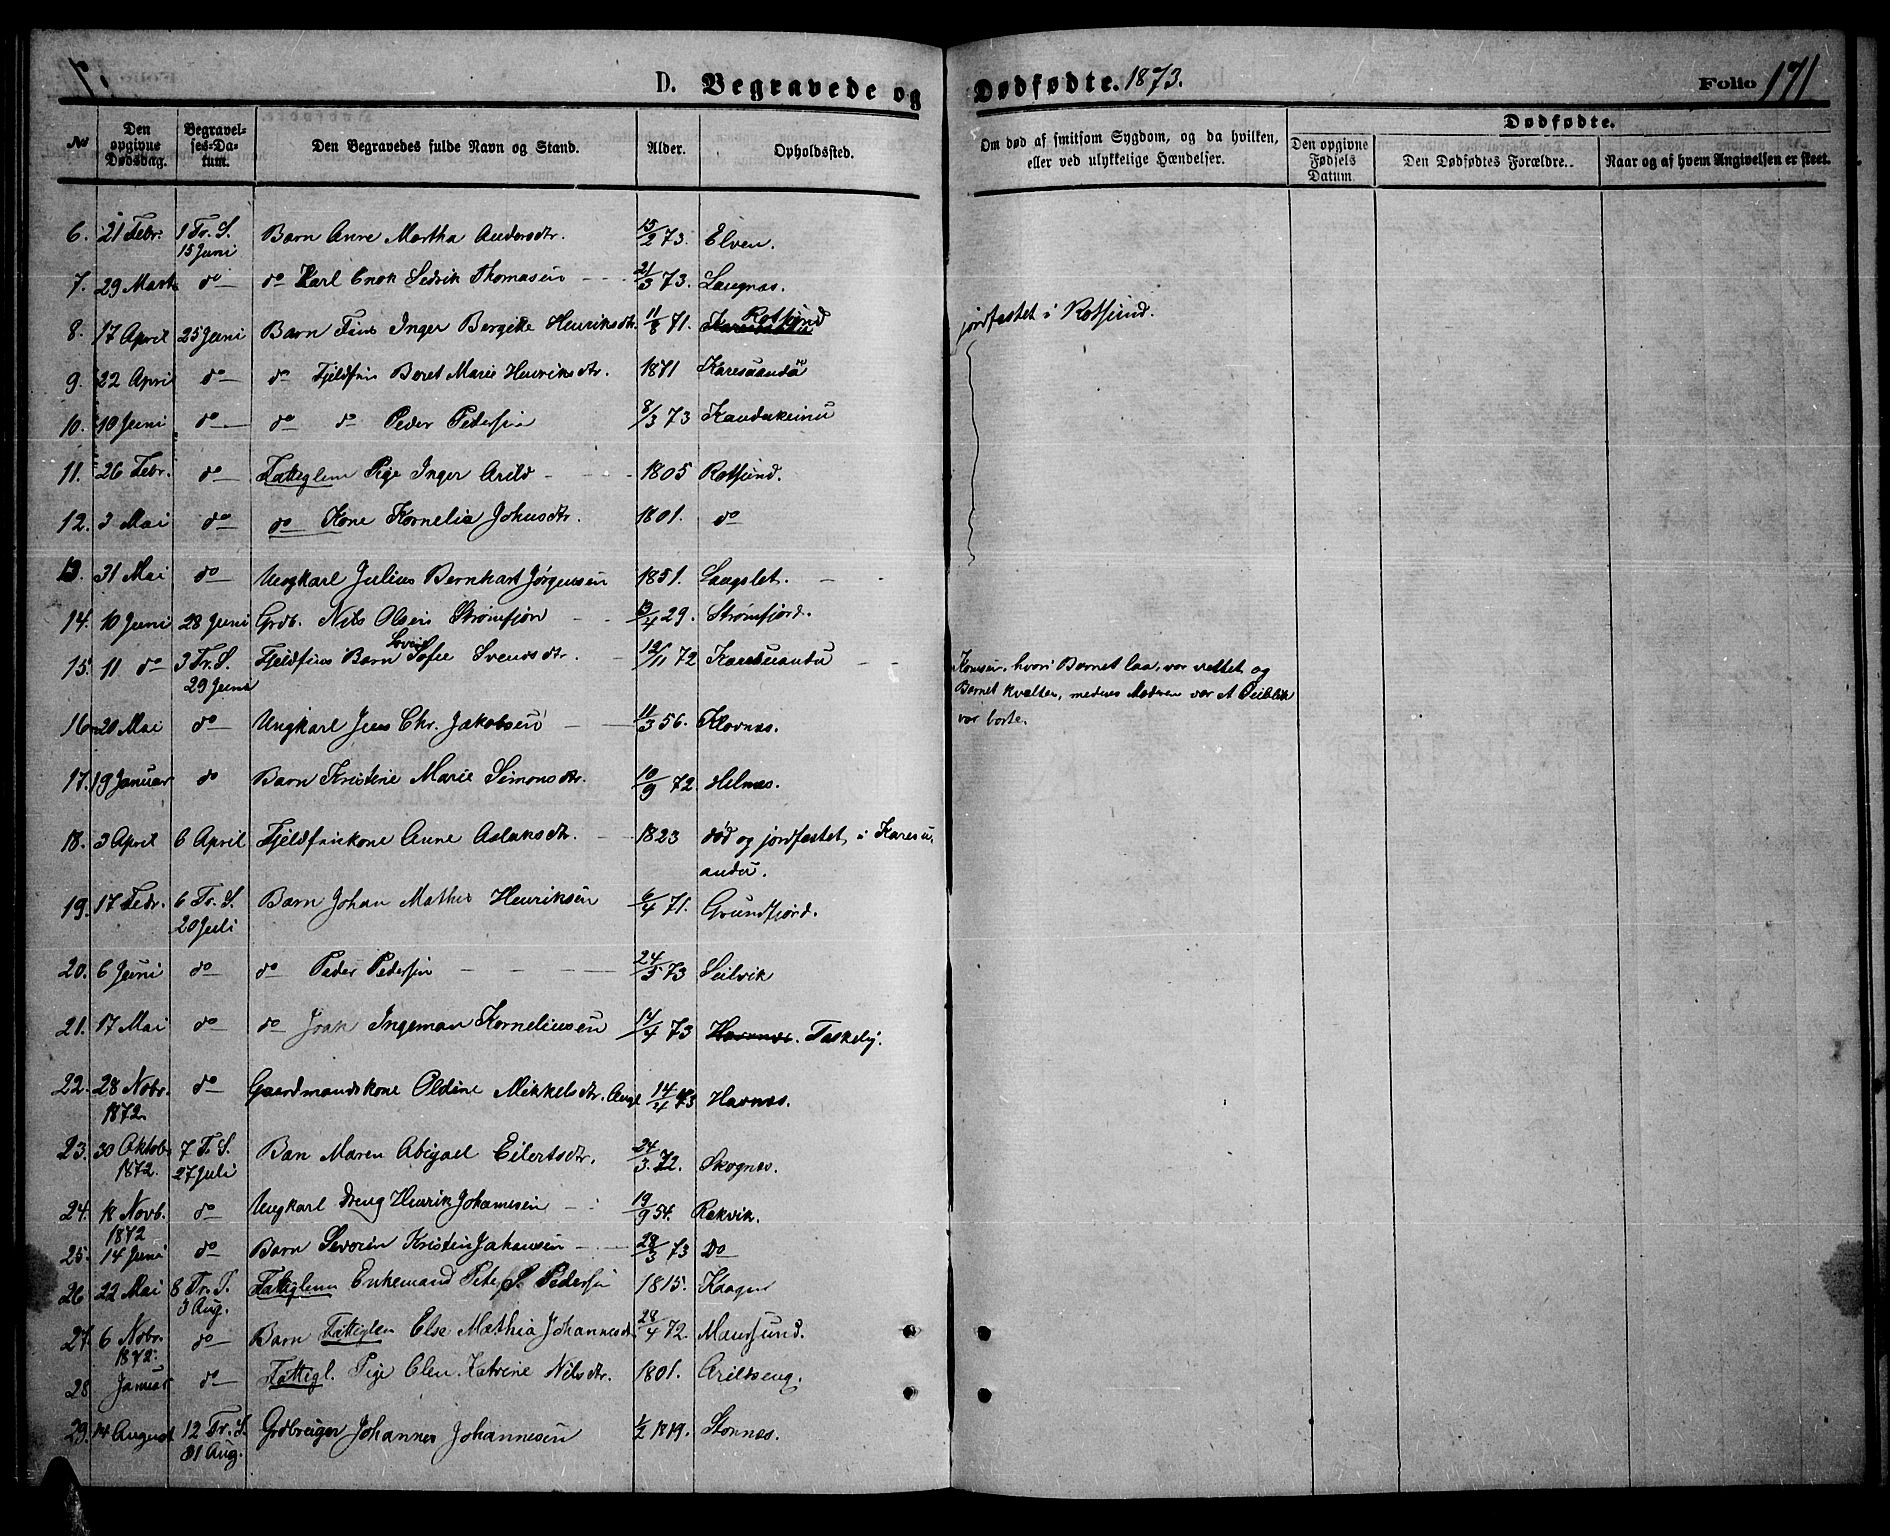 D. Begravede og Dødfødte. 1873. Folio 171
No
Den opgivne Dødsdag.
Begravelses-Datum.
Den Begravedes fulde Navn og Stand.
Alder.
Opholdssted.
Om død af smitsom Sygdom, og da hvilken, eller ved ulykkelige Hændelser.
Dødfødte.
Den opgivne Fødsels Datum.
Den Dødfødtes Forældre.
Naar og af hvem Angivelsen er skeet.
6. 21 Febr. 1 Tr. S. 15 Juni Barn Anne Martha Andersdtr. 15/2 73. Elven.
7. 29 Marts do do Karl Enok Sedrik Thomasen 21/3 73. Langnæs.
8. 17 April 25 Juni Barn Fins Inger Bergitte Henriksdtr. 11/8 71. Rotsund jordfæstet i Rotsund.
9. 22 April do do Fjeldfin Beret Marie Henriksdtr. 1871 Karesuando
10. 10 Juni do do do Peder Pedersen 8/3 73 Kaudokeinu
11. 26 Febr. do Fattiglem Pige Inger Arild 1805 Rotsund.
12. 3 Mai do do Kone Kornelia Johnsdtr. 1801. do
13. 31 Mai do Ungkarl Julius Bernhart Jørgensen 1851. Langslet.
14. 10 Juni 28 Juni Grdb. Nils Olsen Strømfjor 13/4 29. Strømfjord.
15. 11 do 3 Tr. S. 29 Juni Fjeldfins Barn Sofie Svendsdtr. 12/11 72 Karesuandu Komsen, hvori Barnet laa, var veltet og
Barnet kvalten, medens Moderen var et Øieblik
var borte.
16. 20 Mai do Ungkarl Jens Chr. Jakobsen 11/3 56. Klovnæs.
17. 19 Januar do Barn Kristine Marie Simonsdtr. 10/9 72. Helnæs.
18. 3 April 6 April Fjeldfinkone Anne Aslaksdtr. 1823 død og jordfæstet i Karesu
andu.
19. 17 Febr. 6 Tr. S. 20 Juli Barn Johan Mathis Henriksen 6/4 71. Grundfjord.
20. 6 Juni do do Peder Pedersen 24/5 73 Seilvik
21. 17 Mai do do Isak Ingeman Korneliusen 17/4 73 Havnnæs. Taskeby.
22. 28 Nobr. 1872 do Gaardmandskone Oldine Mikkelsdtr. 14/4 Havnæs.
23. 30 Oktob. 1872. 7 Tr. S. 27 Juli Barn Maren Abigael Eilertsdtr. 24/3 72. Skognæs.
24. 18 Novb. 1872 do Ungkarl Dreng Henrik Johannesen 19/9 54. Rekvik.
25. 14 Juni do Barn Severin Kristin Johansen 28/3 73 Do
26 22 Mai 8 Tr. S. 3 Aug. Fattiglem Enkemand Peter S. Pedersen 1815. Kaagen
27. 6 Nobr. 1872. do Barn Fattiglem Else Mathia Johannesdtr. 28/4 72. Maursund.
28 Januar do Fattigl. Pige Elen Katrine Nilsdtr. 1801. Arildseng.
29. 14 August 12 Tr. S. 31 Aug. Grdbruger Johannes Johannesen 1/2 1819. Stornæs.